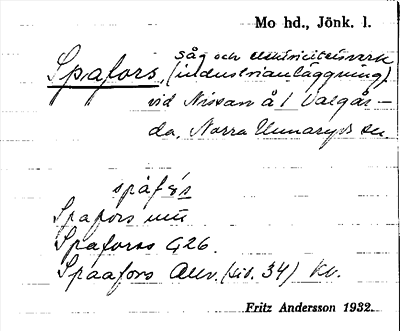 Mo hd., Jönk. l.
såg och elektricitetsverk
Spafors, (industrianläggning)
vid Nissan å i Valgår-
da, Norra Unnaryds sn
spåfỏs
Spafors
Spaforss G26.
Spaafors Allv. (Liv. 34) Kv.
Fritz Andersson 1932.